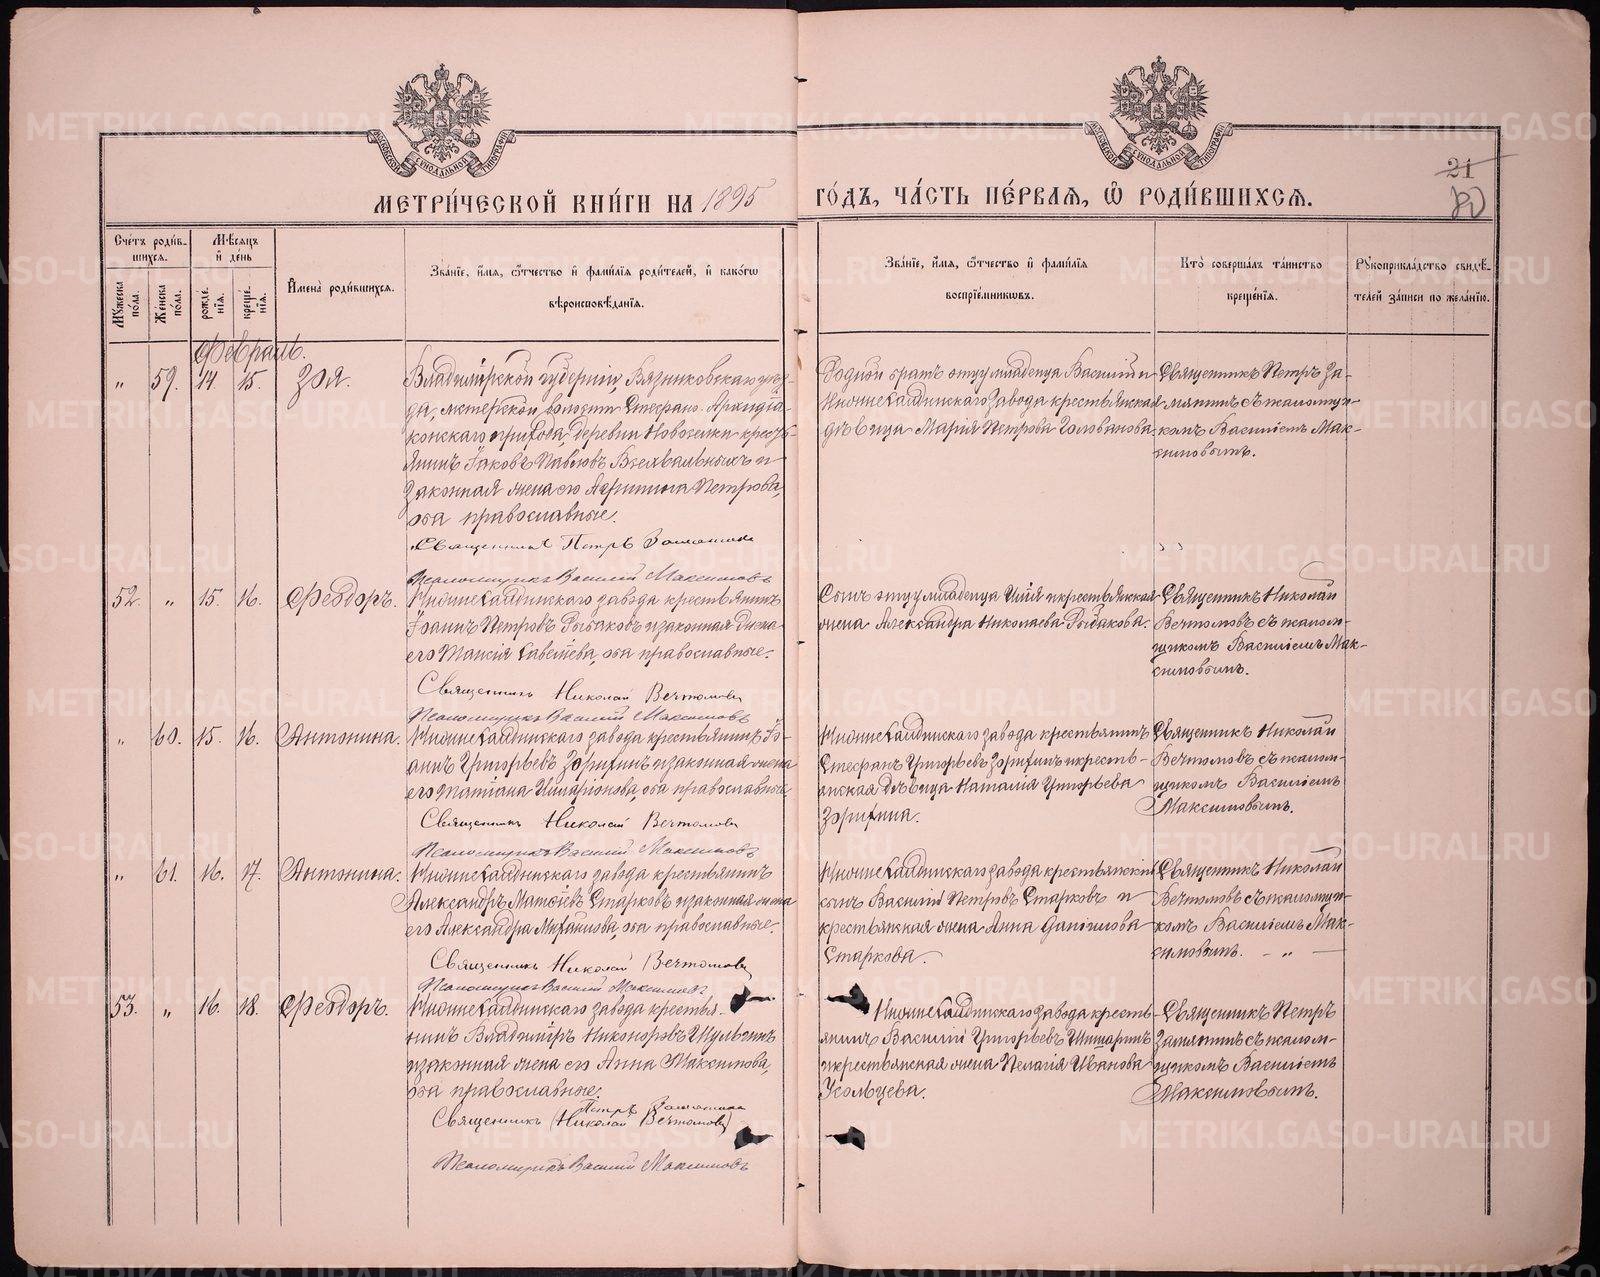 МЕТРИ́ЧЕСКОЙ КНИ́ГИ НА 1895 ГО́ДЪ, ЧА́СТЬ ПЕ́РВАЯ, Ѡ РОДИ́ВШИХСЯ.
21
Сче́тъ роди́вшихся.
Мѣ́сяцъ и де́нь
Му́жеска по́ла.
Же́нска по́ла.
рожде́нія.
креще́нія.
Имена̀ роди́вшихся.
Зва́ніе, и́мя, ѻ́тчество и фами́лія роди́телей, и како́гѡ
вѣроисповѣ́данія.
Зва́ніе, и́мя, ѻ́тчество и фами́лія
воспріе́мниковъ.
Кто̀ соверша́лъ та́инство
креще́нія.
Рукоприкла́дство свидѣ́-
телей за́писи по жела́нію.
Февраль.
„ 59. 14. 15. Зоя.
Владимірской губерніи, Вязниковскаго уѣз-
да, Мстерской волости Стефано-Архидіа-
конскаго прихода, деревни Новоселки кресть-
янинъ Іаковъ Павловъ и
законная жена его Петрова,
оба православные.
Священникъ Петръ Замятинъ
Псаломщикъ Василій Максимовъ
Родной братъ отцу младенца Василій и
Нижнесалдинскаго завода крестьянская
дѣвица Марія Петрова Голованова.
Священникъ Петръ За-
мятинъ съ псаломщи-
комъ Василіемъ Мак-
симовымъ.
52. „ 15. 16. Ѳеодоръ.
Нижнесалдинскаго завода крестьянинъ
Іоаннъ Петровъ Рыбаковъ и законная жена
его Таисія Савельева, оба православные.
Священникъ Николай Вечтомовъ
Псаломщикъ Василій Максимовъ
Сынъ отцу младенца Илія и крестьянская
жена Александра Николаева Рыбакова.
Священникъ Николай
Вечтомовъ съ псалом-
щикомъ Василіемъ Мак-
симовымъ.
„ 60. 15. 16. Антонина.
Нижнесалдинскаго завода крестьянинъ Іо-
аннъ Григорьевъ Зорихинъ и законная жена
его Татіана Иларіонова, оба православные.
Священникъ Николай Вечтомовъ
Псаломщикъ Василій Максимовъ
Нижнесалдинскаго завода крестьянинъ
Стефанъ Григорьевъ Зорихинъ и кресть-
янская дѣвица Наталія Григорьева
Зорихина.
Священникъ Николай
Вечтомовъ съ псалом-
щикомъ Василіемъ
Максимовымъ.
„ 61. 16. 17. Антонина.
Нижнесалдинскаго завода крестьянинъ
Александръ Матѳіевъ Старковъ и законная жена
его Александра Михаилова, оба православные.
Священникъ Николай Вечтомовъ
Псаломщикъ Василій Максимовъ
Нижнесалдинскаго завода крестьянскій
сынъ Василій Петровъ Старковъ и
крестьянская жена Анна Даніилова
Старкова.
Священникъ Николай
Вечтомовъ съ псаломщи-
комъ Василіемъ Мак-
симовымъ. – „ –
53. „ 16. 18. Ѳеодоръ.
Нижнесалдинскаго завода крестья-
нинъ Владиміръ Никоноровъ Шульгинъ
и законная жена его Анна Максимова,
оба православные.
Петръ Замятинъ
Священникъ (Николай Вечтомовъ)
Псаломщикъ Василій Максимовъ
Нижнесалдинскаго завода кресть-
янинъ Василій Григорьевъ
и крестьянская жена Пелагія Иванова
Усольцева.
Священникъ Петръ
Замятинъ съ псалом-
щикомъ Василіемъ
Максимовымъ.
METRIKI.GASO-URAL.RU